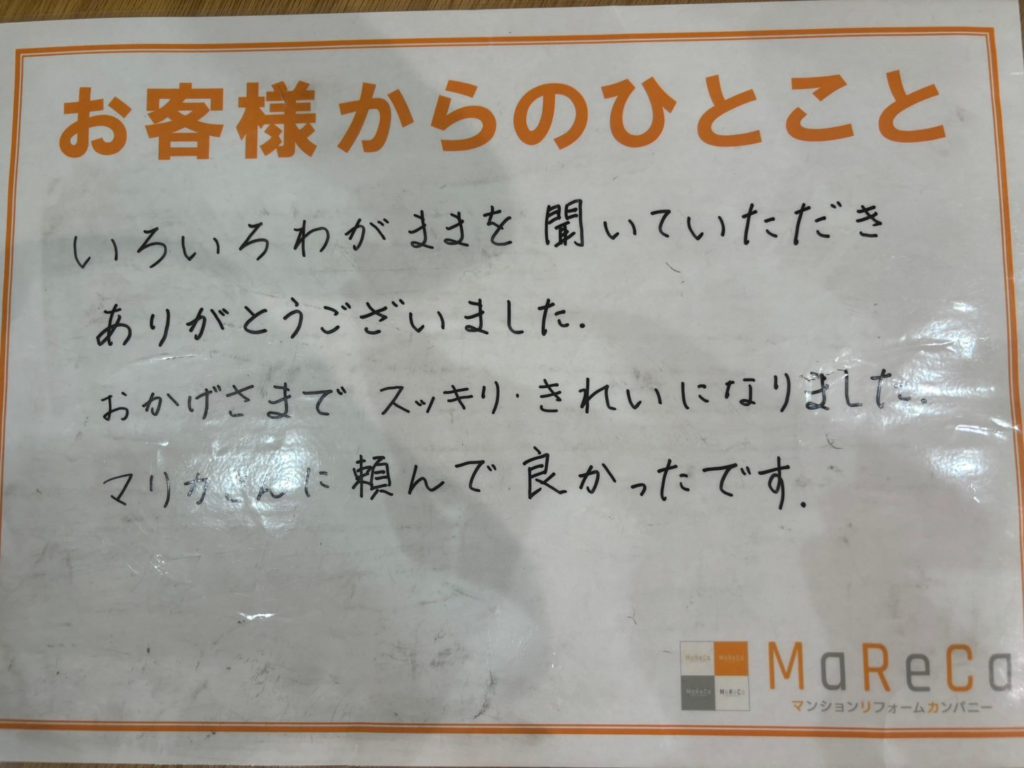 お客様からのひとこと
いろいろわがままを聞いていただき
ありがとうございました.
おかげさまでスッキリ・きれいになりました.
マリカさんに頼んで良かったです.
MaReCa
マンションリフォームカンパニー